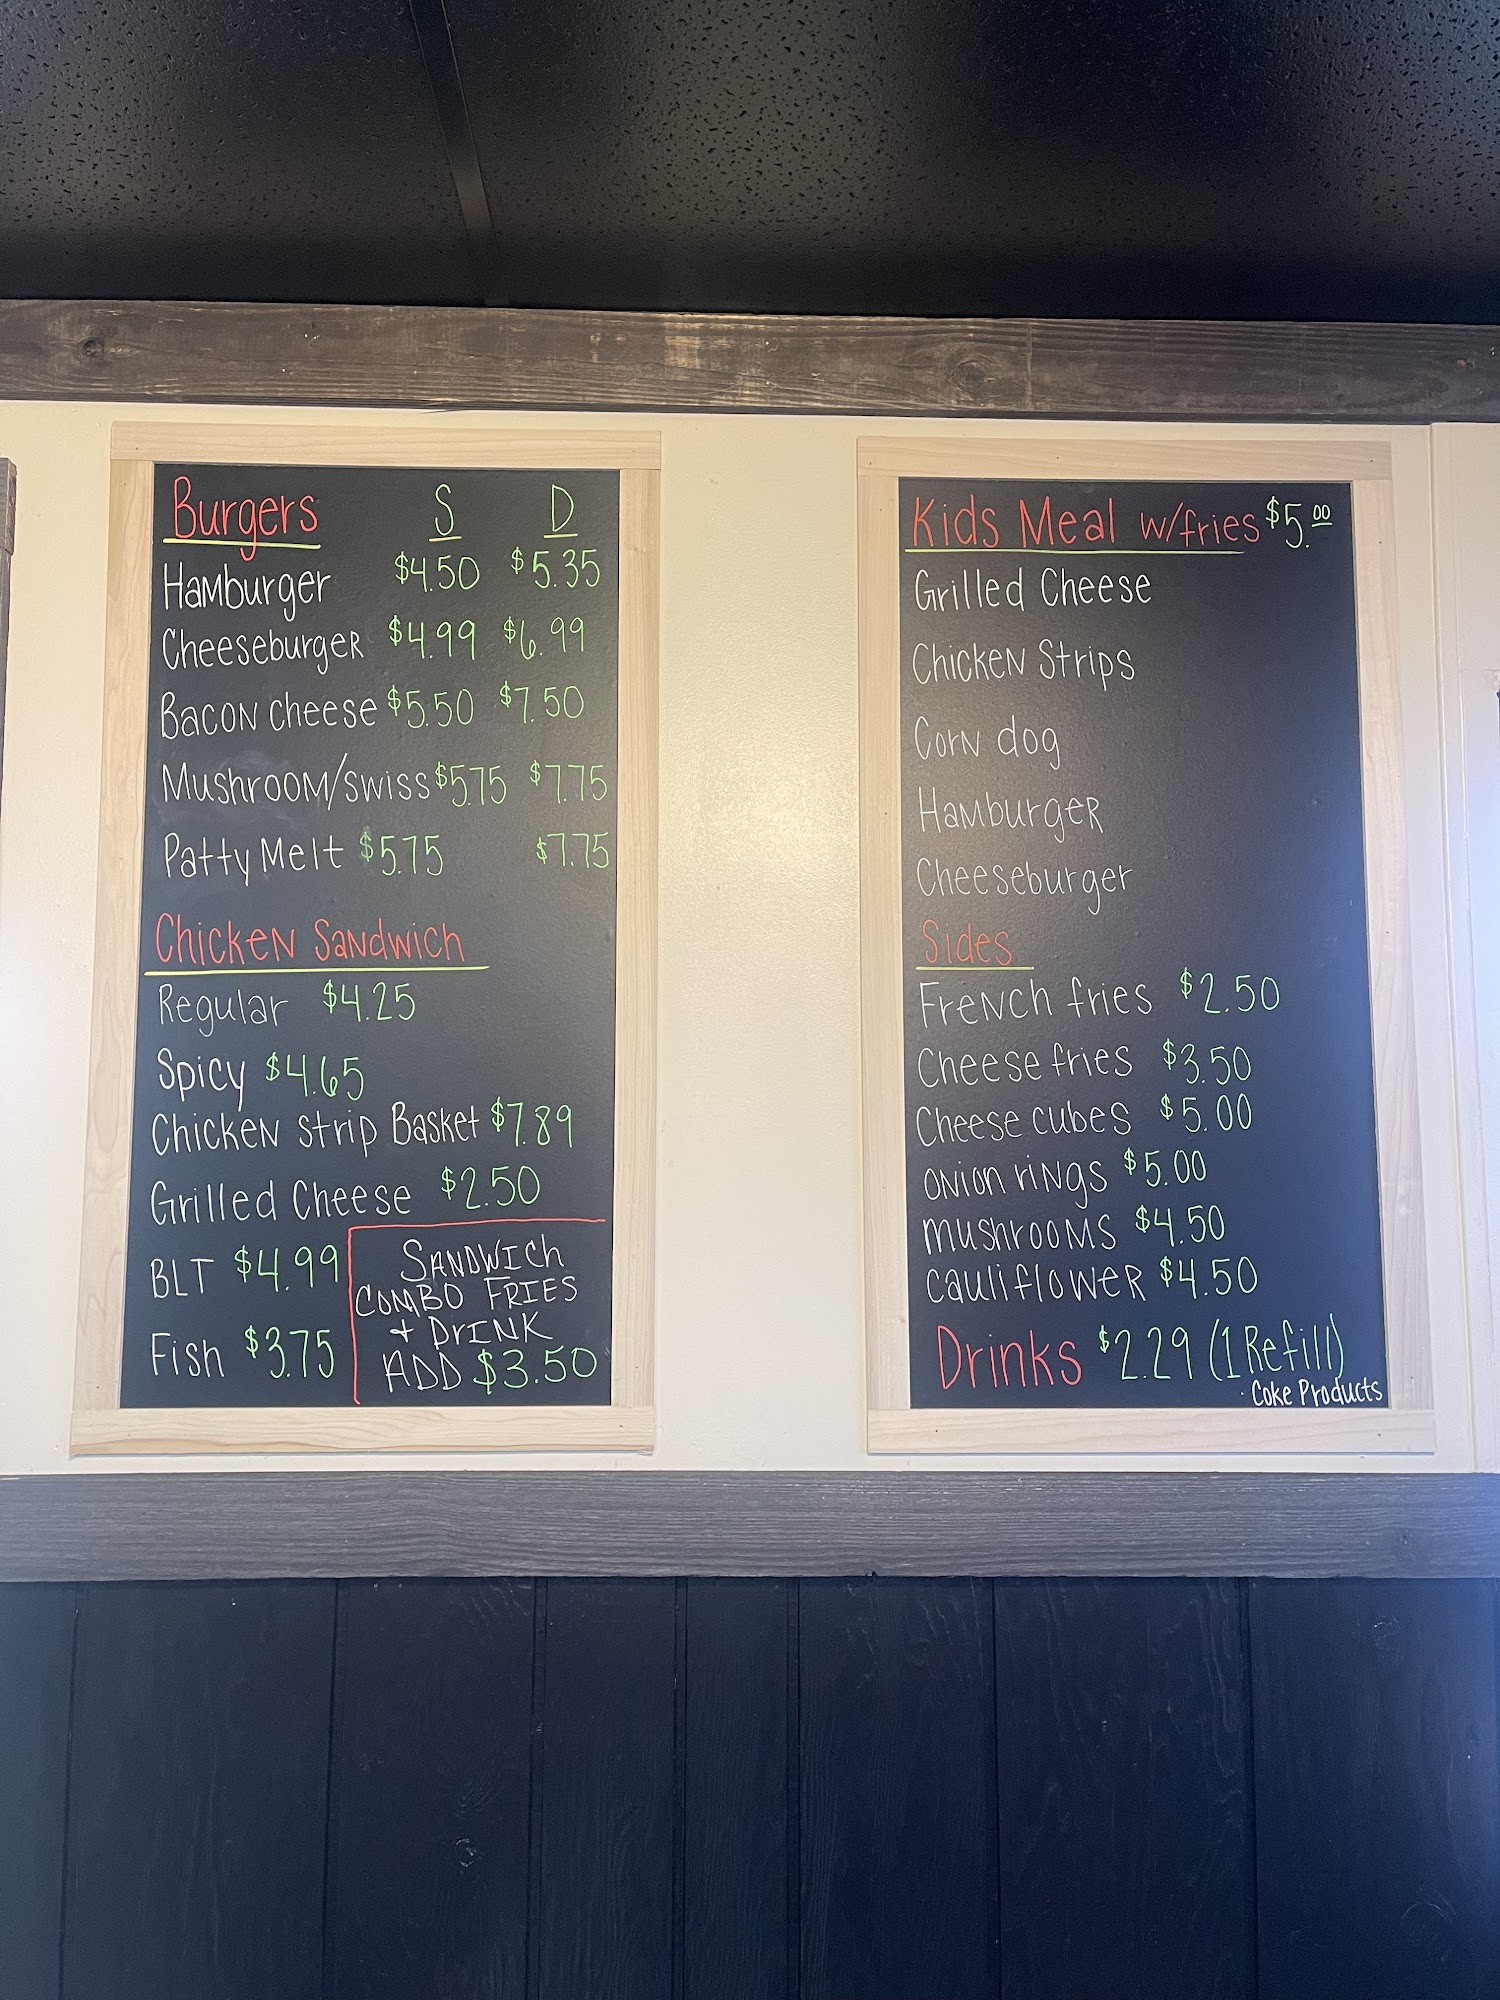 Burgers S D
Hamburger $4.50 $5.35
Cheeseburger $4.99 $6.99
Bacon cheese $5.50 $7.50
Mushroom/swiss $5.75 $7.75
Patty Melt $5.75 $7.75
Chicken Sandwich
Regular $4.25
Spicy $4.65
Chicken Strip Basket $7.89
Grilled Cheese $2.50
BLT $4.99
Fish $3.75
SANDWICH
COMBO FRIES
+ DRINK
ADD $3.50
Kids Meal w/fries $5.00
Grilled Cheese
Chicken Strips
Corn dog
Hamburger
Cheeseburger
Sides
French fries $2.50
Cheese fries $3.50
Cheese cubes $5.00
onion rings $5.00
mushrooms $4.50
cauliflower $4.50
Drinks $2.29 (1 Refill)
· Coke Products